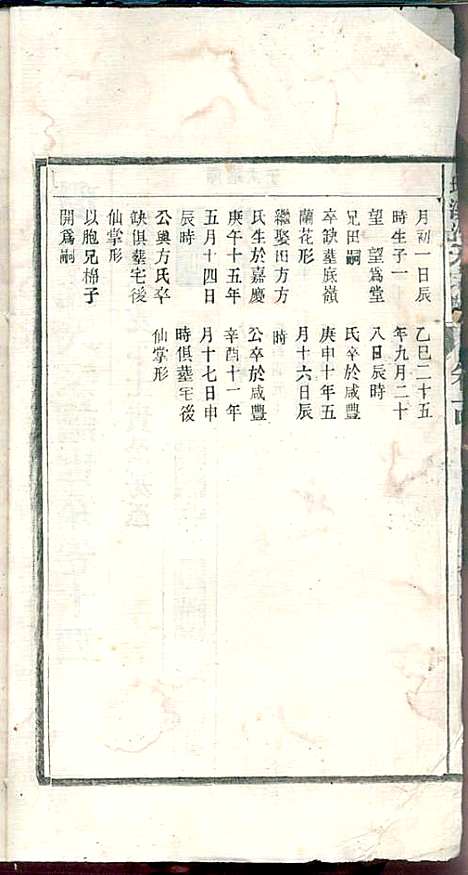 月初一日辰
時生子一
望　望爲堂
兄田嗣
卒缺墓辰嶺
蘭花形
繼娶田方方
氏生於嘉慶
庚午十五年
五月十四日
辰時
公與方氏卒
缺俱墓宅後
仙掌形
以胞兄棉子
開爲嗣
乙巳二十五
年九月二十
八日辰時
氏卒於咸豐
庚申十年五
月十六日辰
時
公卒於咸豐
辛酉十一年
月十七日申
時俱墓宅後
仙掌形